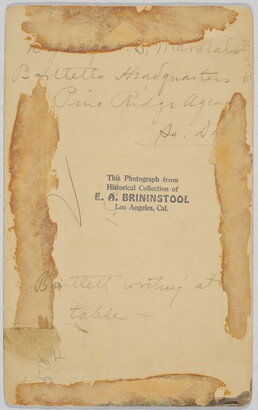 U.S. Marshals
Bartletts Headquarters
Pine Ridge Agency
So. Dak
This Photograph from
Historical Collection of
E. A. BRININSTOOL
Los Angeles, Cal.
Bartlett writing at
table –